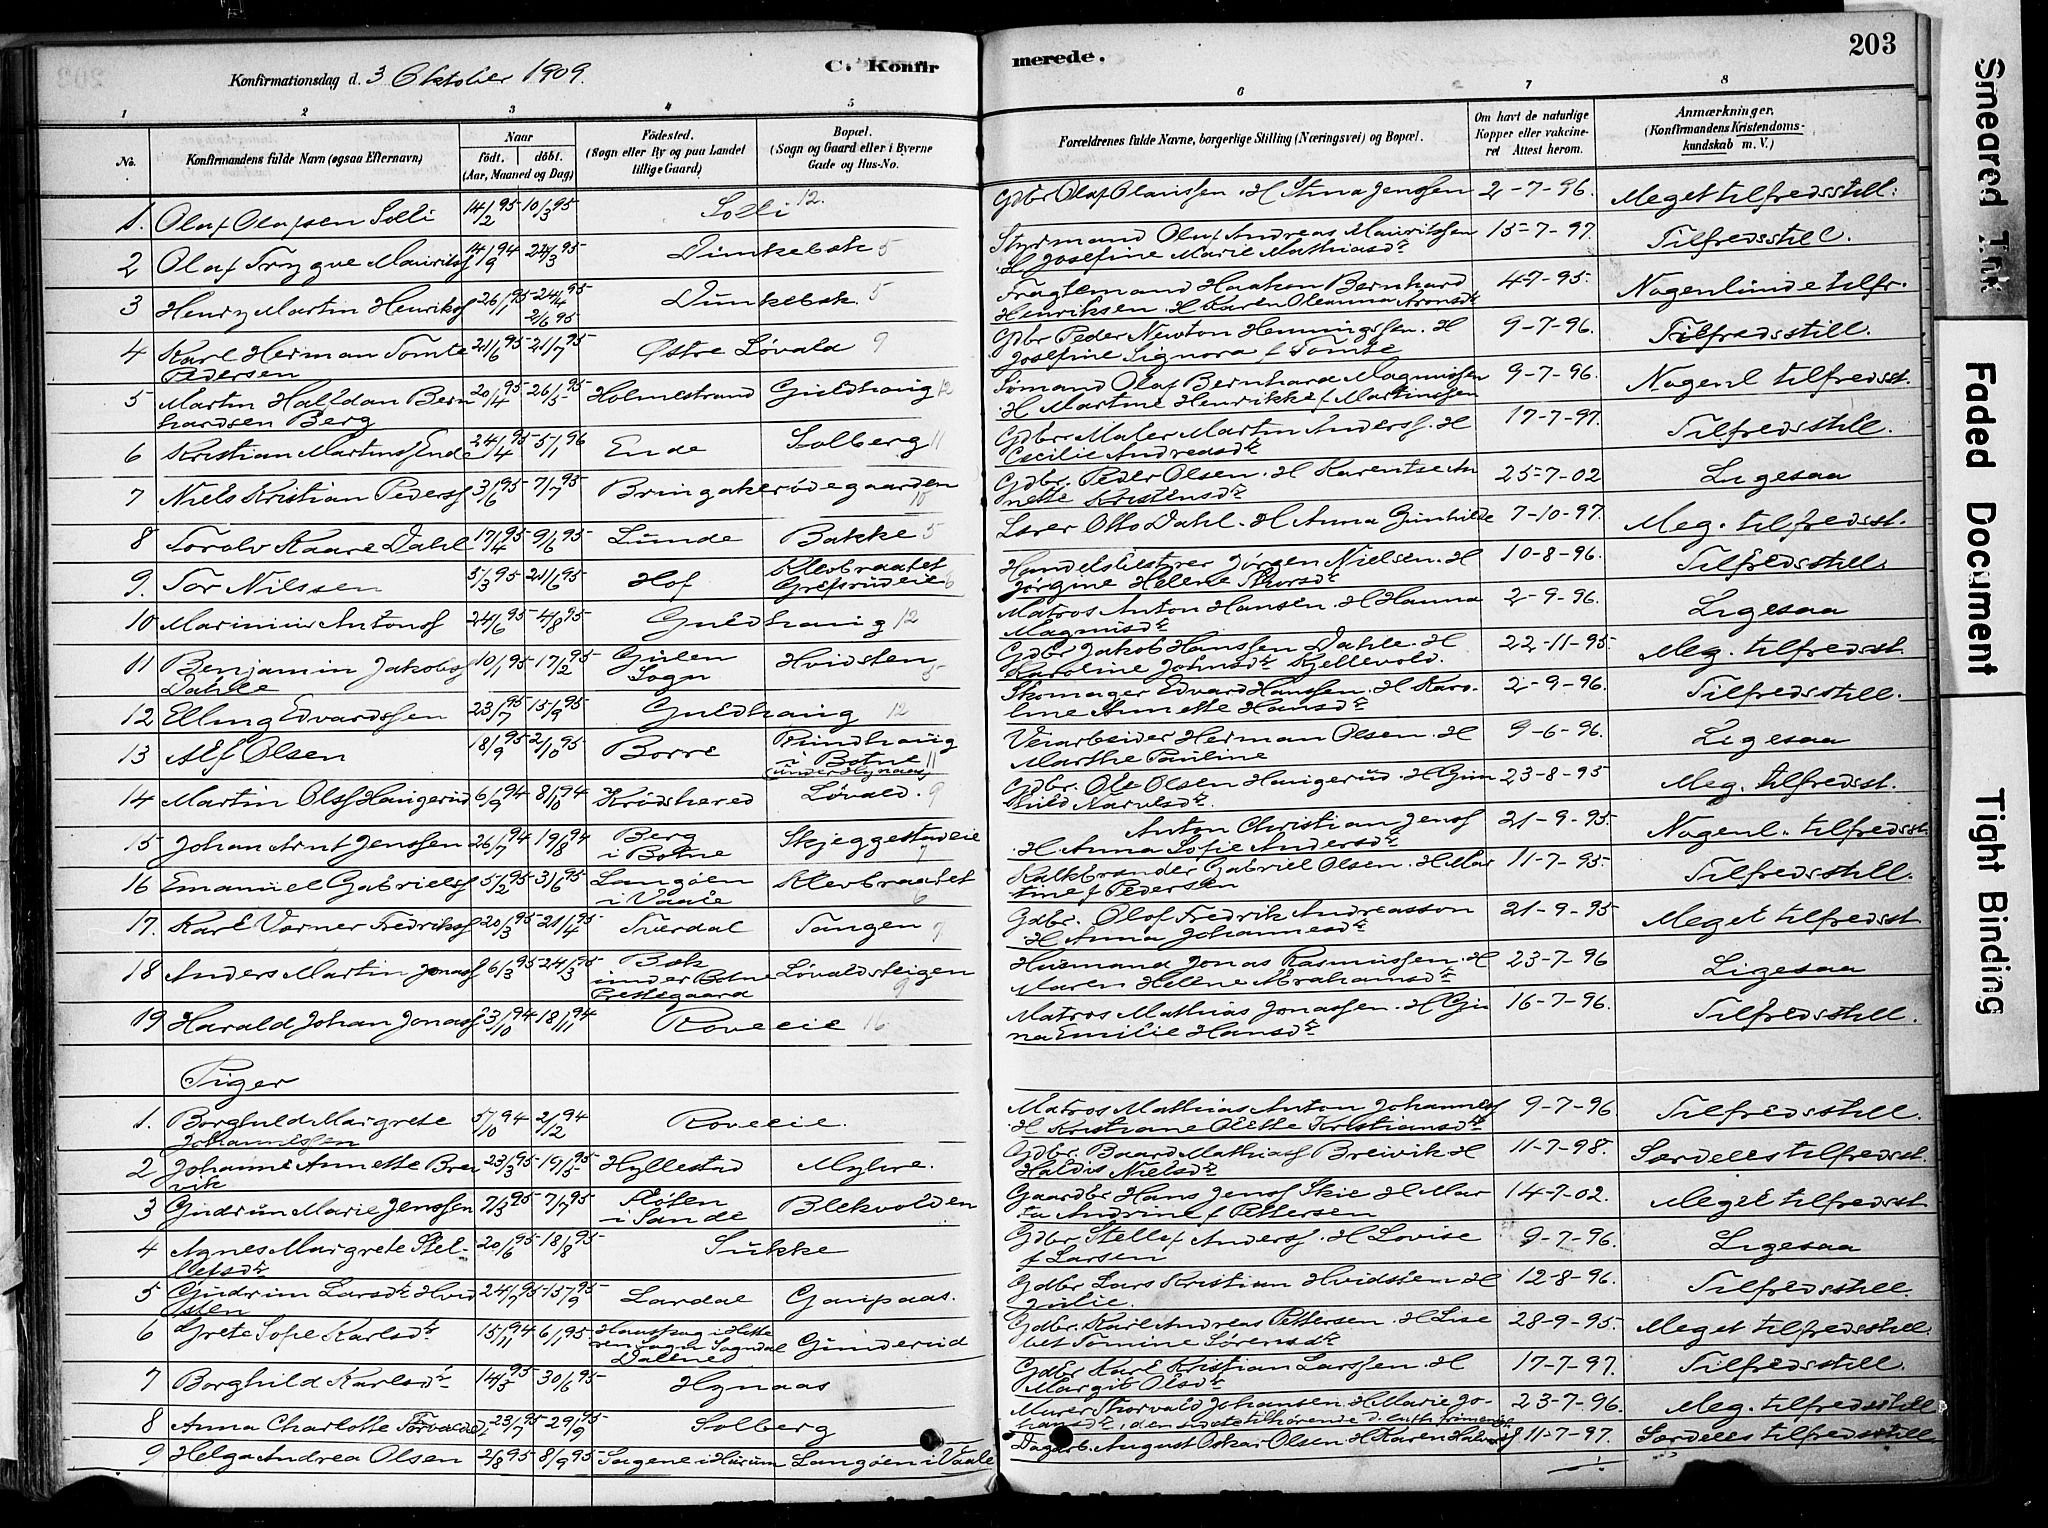 Konfirmationsdag d. 3 Oktober 1909.
C. Konfirmerede.
203
1 2 3 4 5 6 7 8
No. Konfirmandens fulde Navn (ogsaa Efternavn) Naar født. døbt. (Aar, Maaned og Dag) Fødested. (Sogn eller By og paa Landet tillige Gaard) Bopæl. (Sogn og Gaard eller i Byerne Gade og Hus-No. Forældrenes fulde Navne, borgerlige Stilling (Næringsvei) og Bopæl. Om havt de naturlige Kopper eller vakcineret Attest herom. Anmærkninger. (Konfirmandens Kristendomskundskab m. V.)
1. Olaf Olafsen Solli 14/2 95 10/3 95 Solli 12. Gdbr Olaf Olaussen. H Stina Jenssen 2-7-96. Meget tilfredsstill.
2 Olaf Trygve Mauritsf 14/9 94 24/3 95 Dunkebek 5 Styrmand Oluf Andreas Mauritssen 15-7-97. Tilfredsstill.
H Josefine Marie Mathiasdtr
3 Henry Martin Henriksf 26/1 95 24/4 95 Dunkebek. 5 Fragtemand Haakon Bernhard 4-7-95. Nogenlunde tilfr.
21/6 95 Henriksen. H Karen Oleanna Aronsdtr
4 Karl Herman Tomte 21/6 95 21/7 95 Østre Løvald 9 Gdbr Peder Newton Hemmingssen. H 9-7-96. Tilfredsstill.
Pedersen Josefine Signora f Tomte
5 Martin Halfdan Bern 20/4 95 26/5 95 Holmestrand Guldhaug 12 Sømand Olaf Bernhard Magnussen 9-7-96. Nogenl tilfredsst.
hardsen Berg H Martine Henrikke f Martinssen
6 Kristian Martinsf Ende 24/4 95 5/1 96 Ende Solberg 11 Gdbr Maler Martin Andersf. H 17-7-97. Tilfredsstill.
Cecilie Andreasdtr
7 Niels Kristian Pedersf 3/6 95 7/7 95 Bringakerødegaarden 10 Gdbr. Peder Olsen. H Karentse An 25-7-02 Ligesaa
nette Kristensdtr
8 Torolv Kaare Dahl 17/4 95 9/6 95 Lunde Bakke 5 Lærer Otto Dahl. H Anna Gunhilde 7-10-97. Meg. tilfredsst.
9. Tor Nilssen 5/3 95 21/6 95 Hof Klevbraatet Handelsbestyrer Jørgen Nielsen. H 10-8-96. Tilfredsstill.
Grefsrudeie 6 Jørgine Helene Thorsdtr
10 Marinius Antonsf 24/6 95 4/8 95 Guldhaug 12 Matros Anton Hansen. H Hanna 2-9-96. Ligesaa
Magnusdtr
11 Benjamin Jakobsf 10/1 95 17/2 95 Gulen Hvidsten Gdbr Jakob Hanssen Dahle. H 22-11-95. Meg. tilfredsst.
Dahle Sogn 5 Karoline Johnsdtr Kjellevold.
12 Elling Edvardssen 23/7 95 15/9 95 Guldhaug 12 Skomager Edvard Hanssen. H Karo- 2-9-96. Tilfredsstill.
line Annette Hansdtr
13 Alf Olsen 18/9 95 2/10 95 Borre Rundhaug Verarbeider Herman Olsen. H 9-6-96. Ligesaa
i Botne 11 Marthe Pauline
(under Hynaas)
14 Martin Olsf Haugerud 6/9 94 8/10 94 Krødshered Løvald. 9 Gdbr. Ole Olsen Haugerud. H Gun 23-8-95 Meg. tilfredsst.
hild Narvesdtr.
15 Johan Arnt Jenssen 26/7 94 19/8 94 Berg Skjeggestadeie Anton Christian Jensf 21-9-95. Nogenl. tilfredsst.
i Botne 7 H Anna Sofie Andersdtr
16 Emanuel Gabrielsf 5/2 95 3/6 95 Langøen Klevbraatet Kalkbrænder Gabriel Olsen. H Mar 11-7-95 Tilfredsstill.
i Vaale 6 tine f Pedersen
17. Karl Verner Fredriksf 20/3 95 21/4 95 Tverdal Tangen 9 Gdbr. Olof Fredrik Andreasson 21-9-95 Meget tilfredsst.
H Anna Johannesdtr
18 Anders Martin Jonasf 6/3 95 24/3 95 Bæk Løvaldsteigen Husmand Jonas Rasmussen. H 23-7-96 Ligesaa
under Botne 9 Maren Helene Abrahamsdtr
Prestegaard
19 Harald Johan Jonasf 3/10 94 18/11 94 Roveeie 16 Matros Mathias Jonassen. H Gu 16-7-96. Tilfredsstill.
na Emilie Hansdtr
Piger
1. Borghild Margrete 5/10 94 2/12 94 Roveeie. Matros Mathias Anton Johannesf 9-7-96. Tilfredsstill.
Johannessen H Kristiane Olette Kristiansdtr
2 Johanne Annette Brei 23/3 95 19/5 95 Hyllestad Myhre. Gdbr. Baard Mathiasf Breivik H 11-7-98. Særdeles tilfredsst.
vik Haldis Nielsdtr
3 Gudrun Marie Jenssen 7/3 95 7/7 95 Fosten Blekvolden Gaardbr Hans Jensf Skie H Mar 14-7-02. Meget tilfredsst.
i Sande ta Andrine f Pettersen
4 Agnes Margrete Stel- 20/6 95 18/8 95 Sukke Gdbr Stellef Andersf. H Lovise 9-7-96. Ligesaa
lefsdtr f Larsen
5 Gudrun Larsdtr Hvid 24/7 95 15/9 95 Lardal Gaupaas. Gdbr Lars Kristian Hvidsten H 12-8-96. Tilfredsstill.
sten Julie.
6 Grete Sofie Karlsdtr 15/11 94 6/1 95 Gunderud Gdbr. Karl Andreas Pettersen. H Lise 28-9-95. Meget tilfredsstill.
bet Tomine Sørensdtr
7 Borghild Karlsdtr 14/5 95 30/6 95 Hynaas Gdbr Karl Kristian Larssen. H 17-7-97. Tilfredsstill.
Margit Olsdtr
8 Anna Charlotte Torvaldsd 23/7 95 29/9 95 Solberg Murer Thorvald Johansen. H Marie Jo- 23-7-96. Meg. tilfredsstill
hansdtr, den sidste tilhørende d. luth. frimenig.
9 Helga Andrea Olsen 2/8 95 8/9 95 Sagene i Hurum Langøen i Vaale Dagarb. August Oskar Olsen. H Karen Halvorsf 11-7-97. Særdeles tilfredsstill
Smeared Ink
Faded Document
Tight Binding